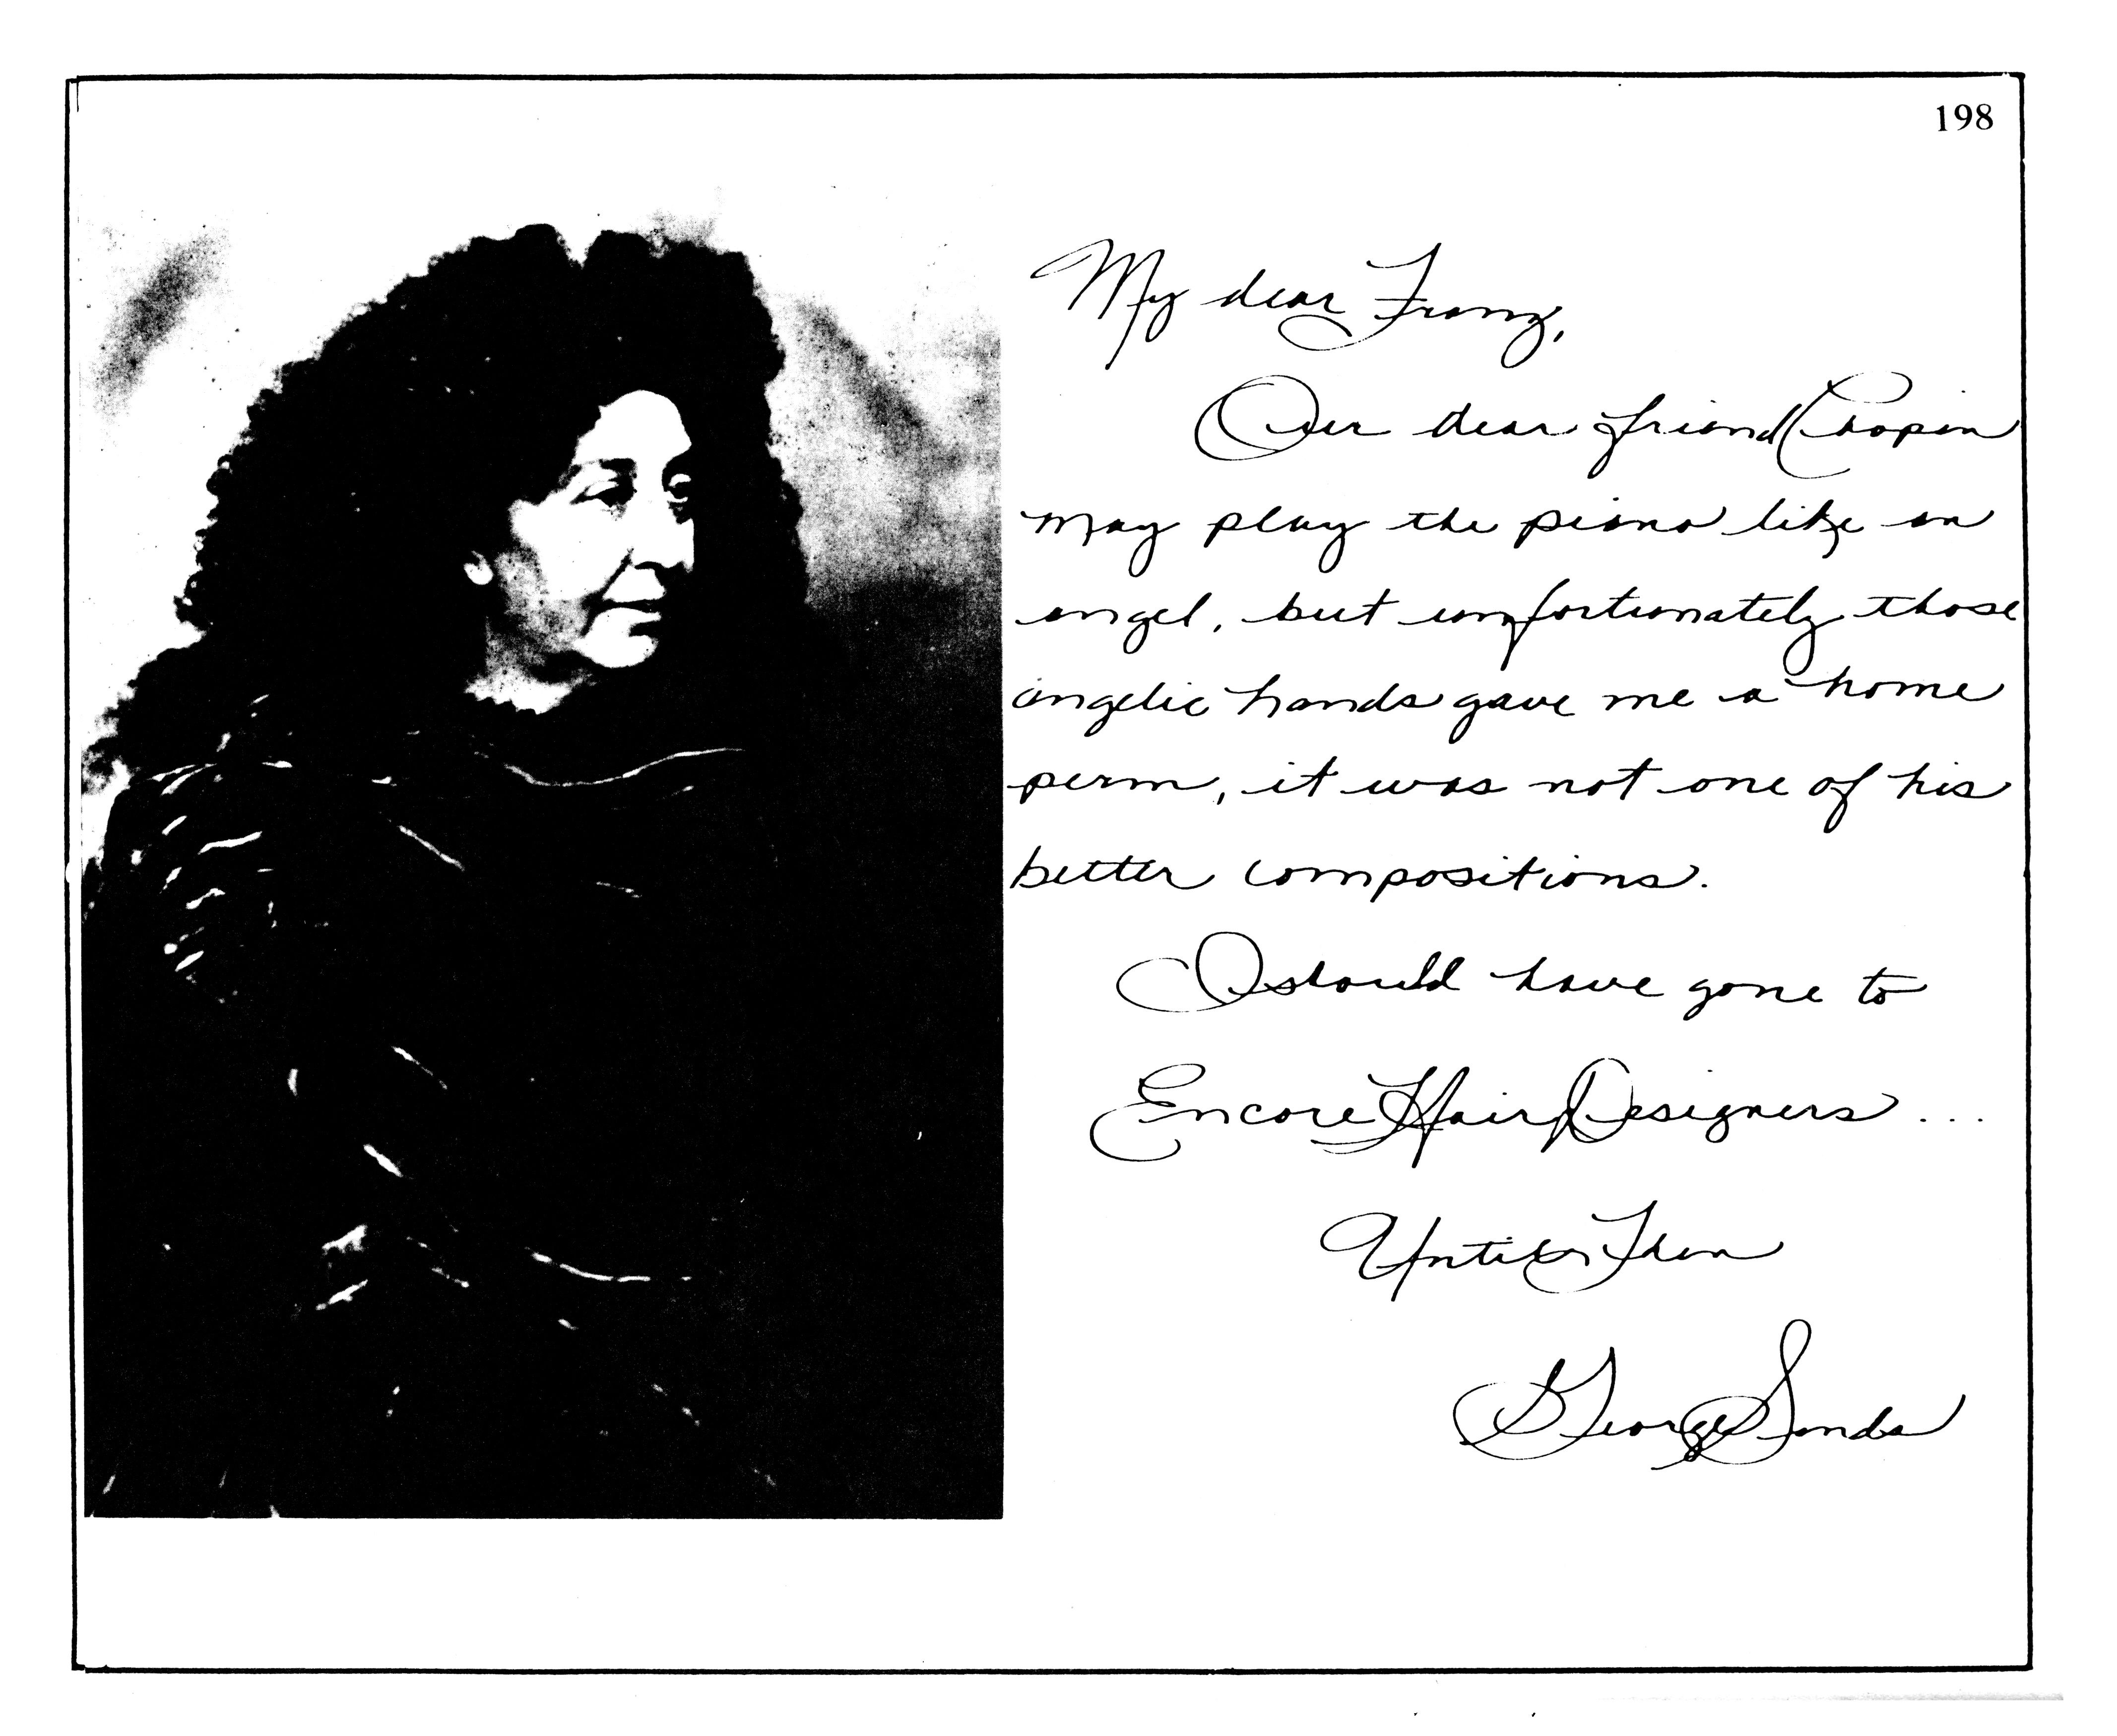 198
My dear Franz,
Our dear friend Chopin
may play the piano like an
angel, but unfortunately those
angelic hands gave me a home
perm, it was not one of his
better compositions.
I should have gone to
Encore Hair Designers ...
Until Then
George Sands